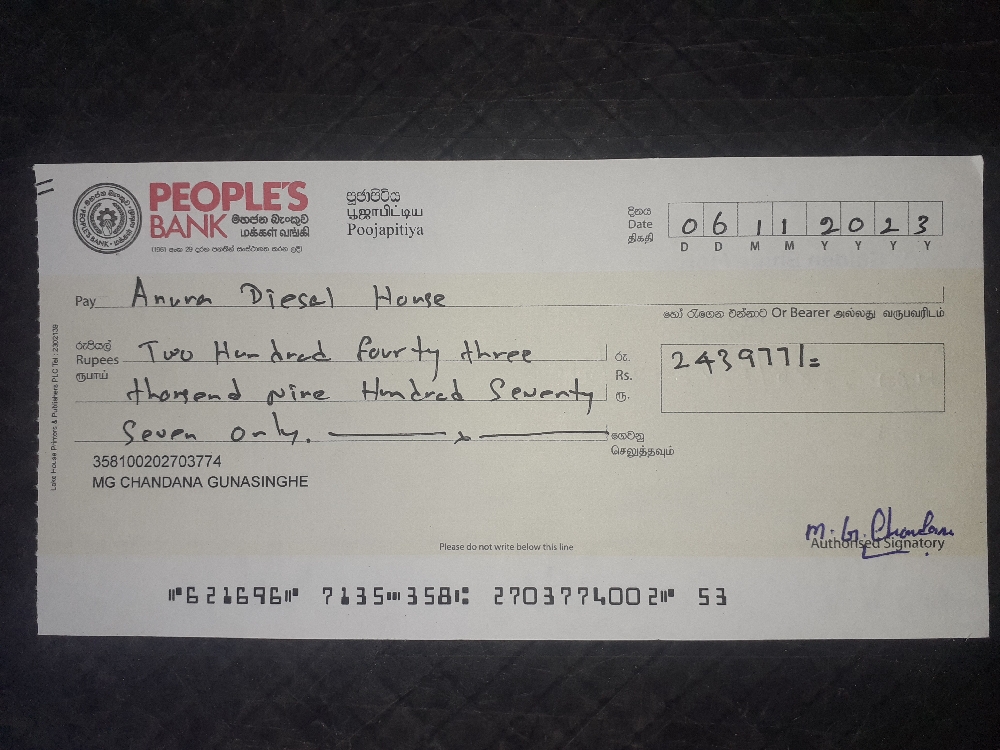 PEOPLE'S
BANK මහජන බැංකුව
மக்கள் வங்கி
(1961 අංක 29 දරන පනතින් සංස්ථාගත කරන ලදී)
පූජාපිටිය
பூஜாபிட்டிய
Poojapitiya
දිනය
Date 0 6 1 1 2 0 2 3
திகதி D D M M Y Y Y Y
Pay Anura Diesel House
හෝ රැගෙන එන්නාට Or Bearer அல்லது வருபவரிடம்
රුපියල්
Rupees Two Hundred fourty three
ரூபாய்
රු.
Rs. 243977/=
ரூ.
thousend nine Hundred Seventy
Seven only.
ගෙවනු
செலுத்தவும்
358100202703774
MG CHANDANA GUNASINGHE
M. G. Chandana
Authorised Signatory
Please do not write below this line
⑈621696⑈ 7135⑉358⑆ 2703774002⑈ 53
Lake House Printers & Publishers PLC Tel : 2302139